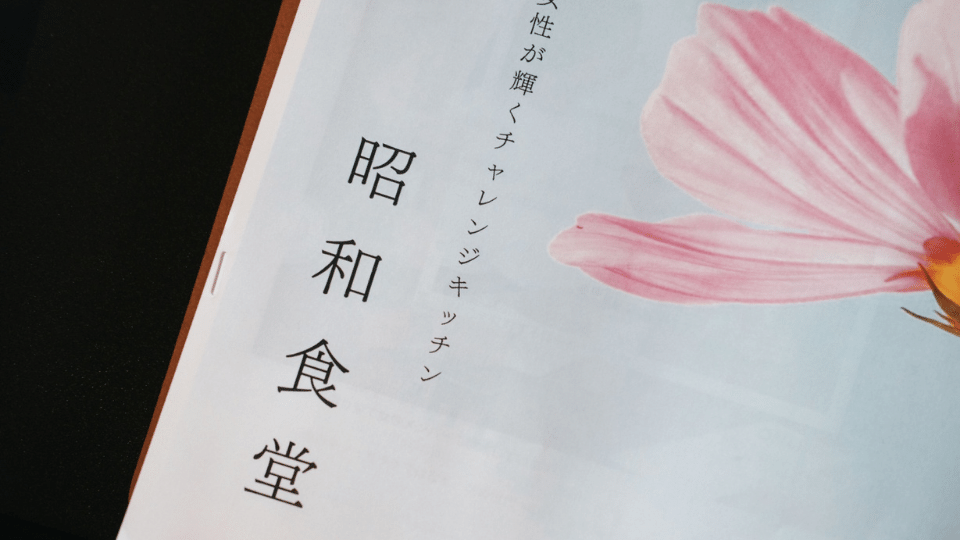 女性が輝くチャレンジキッチン
昭和食堂